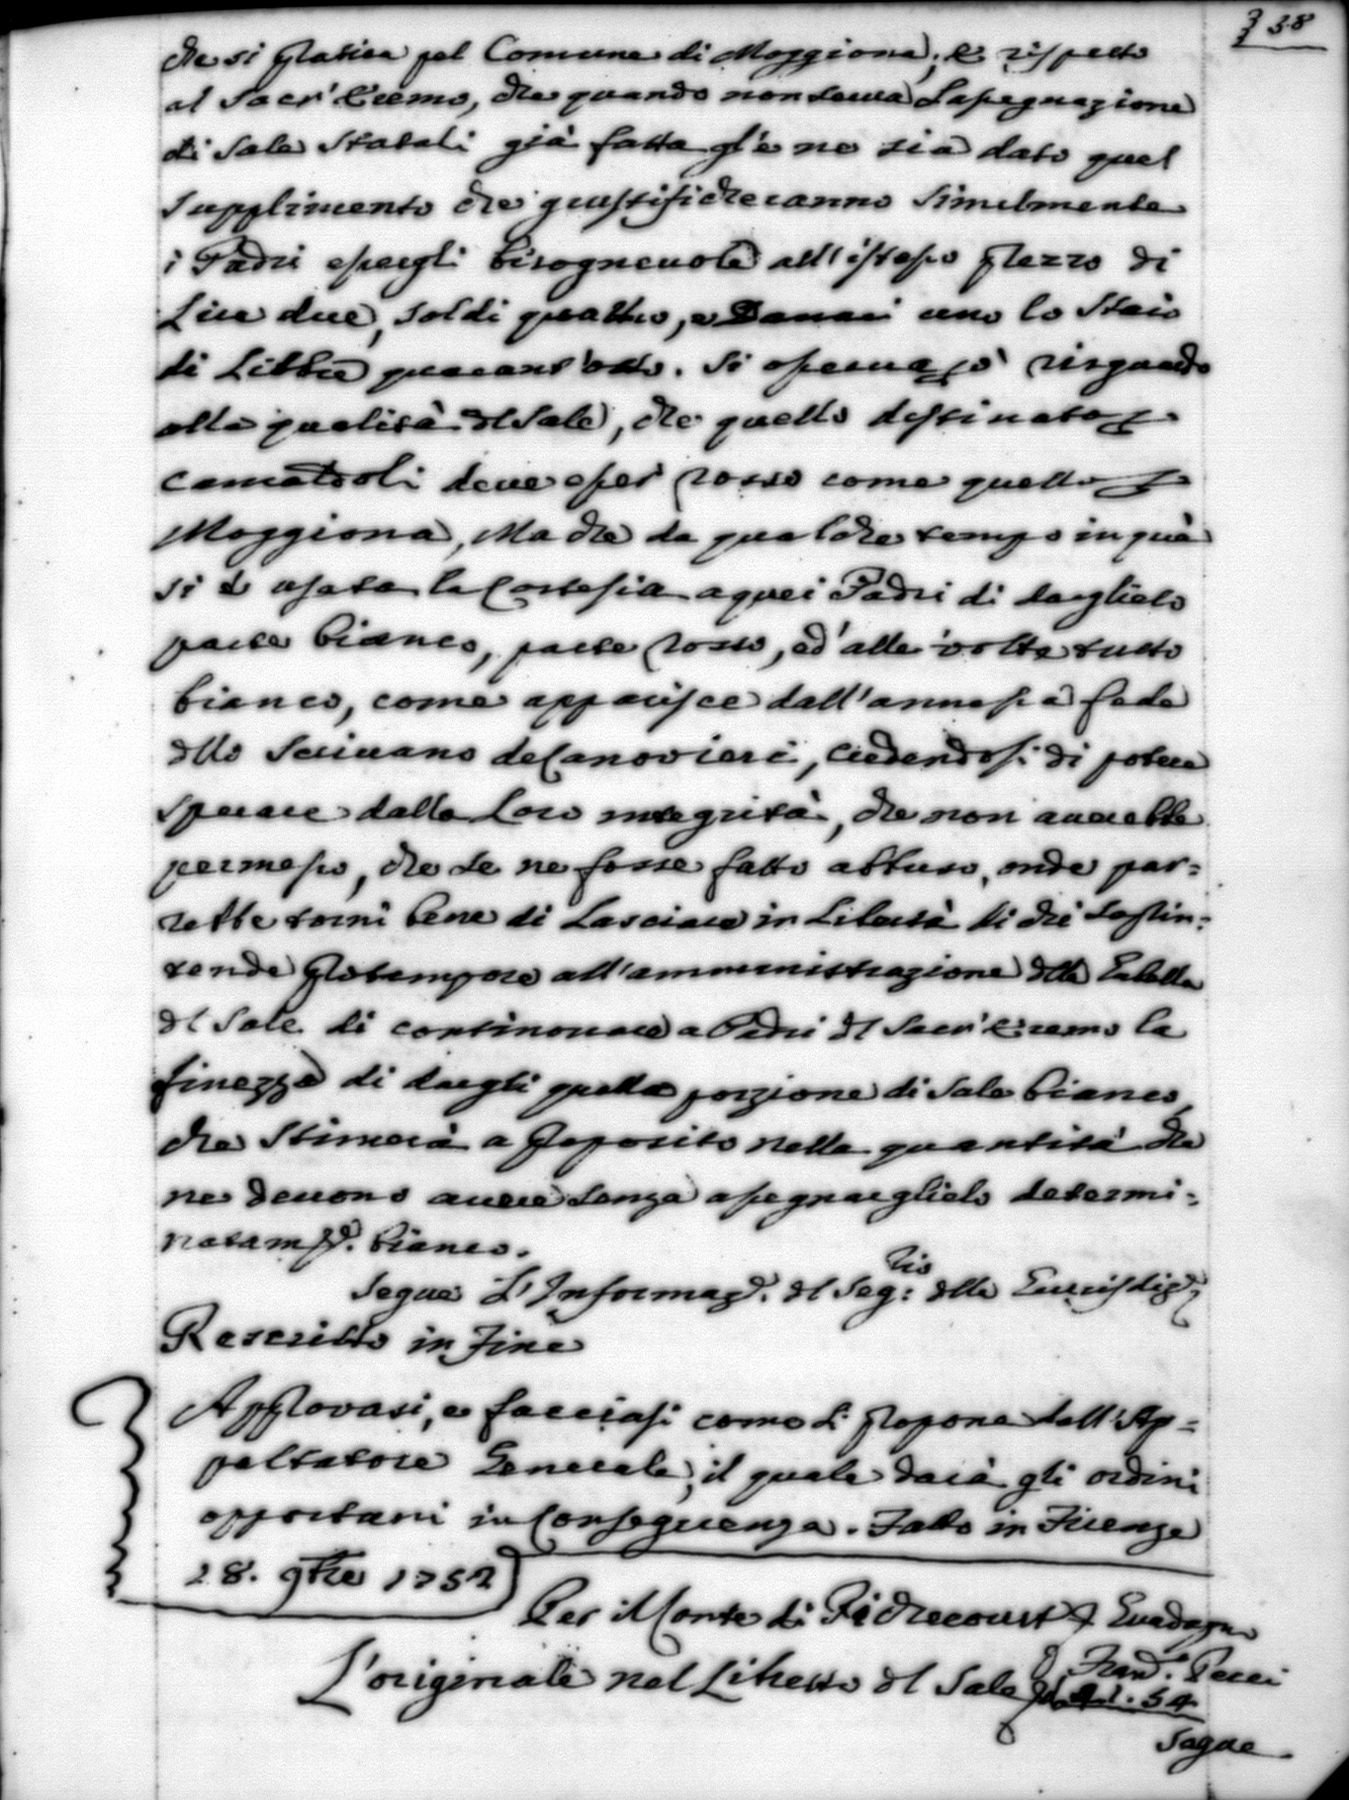 338
che si pratica pel Comune di Moggiona; e rispetto
al Sacr'Eremo, che quando non serva l'assegnazione
di Sale Statali già fatta gl'è ne sia dato quel
supplimento che giustificheranno similmente
i Padri essergli bisognevole all'istesso prezzo di
Lire due, soldi quattro, e Danari uno lo Staio
di Libbre quarant'otto. Si osserva però risguardo
alla qualità del Sale, che quello destinato per
Camaldoli deve esser rosso come quello per
Moggiona, Ma che da qualche tempo in quà
si è usata la Cortesia a quei Padri di darglielo
parte bianco, parte rosso, ed'alle volte tutto
bianco, come apparisce dall'annessa fede
dello Scrivano de Canovieri, credendosi di potere
sperare dalla Loro integrità, che non averebbe
permesso, che se ne fosse fatto abbuso, onde par=
rebbe torni bene di Lasciare in Libertà di chi sostin=
tende pro tempore all'amministrazione della Gabella
del Sale di continovare a Padri del Sacr'Eremo la
finezza di dargli quella porzione di Sale bianco,
che Stimerà a proposito nella quantità che
ne devono avere senza assegnarglielo determi=
natam.te bianco.
Segue L'Informaz.e del Seg:rio della Giurisdiz.e
Rescritto in Fine
Approvasi, e facciasi come si propone dall'Ap=
paltatore Generale, il quale darà gli ordini
opportuni in Conseguenza. Fatto in Firenze
28. 9bre 1752
Per il Conte di Richecourt G Guadagni
Fran.co Pecci
L'originale nel Libretto del Sale 54
Segue